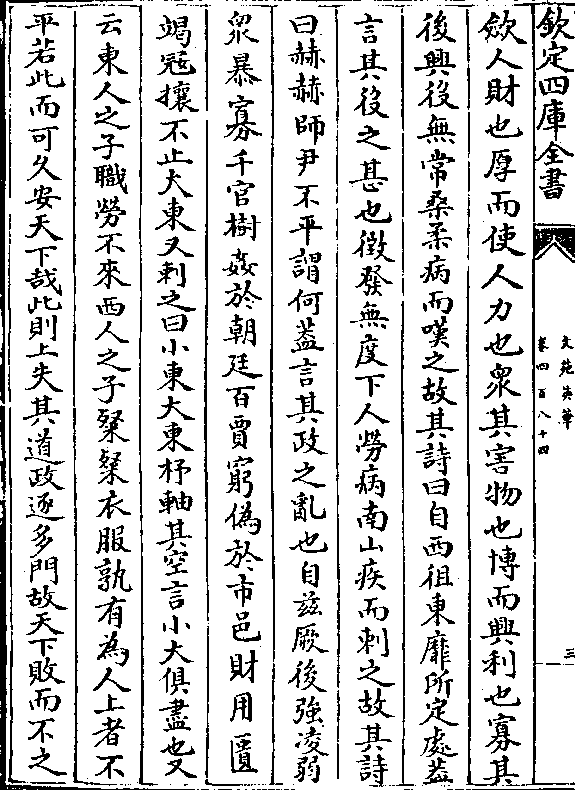 欽定四庫全書
文苑英華
卷四百八十四
三
歛人財也厚而使人力也衆其害物也博而興利也寡其
後興後無常桑柔病而嘆之故其詩曰自西徂東靡所定處葢
言其役之甚也徵發無度下人勞病南山疾而刺之故其詩
曰赫赫師尹不平謂何葢言其政之亂也自兹厥後強凌弱
衆暴寡千官樹姦於朝廷百賈窮偽於市邑財用匱
竭冦攘不止大東又刺之曰小東大東杼軸其空言小大俱盡也又
云東人之子職勞不來西人之子粲粲衣服孰有為人上者不
平若此而可久安天下哉此則上失其道政逐多門故天下敗而不之